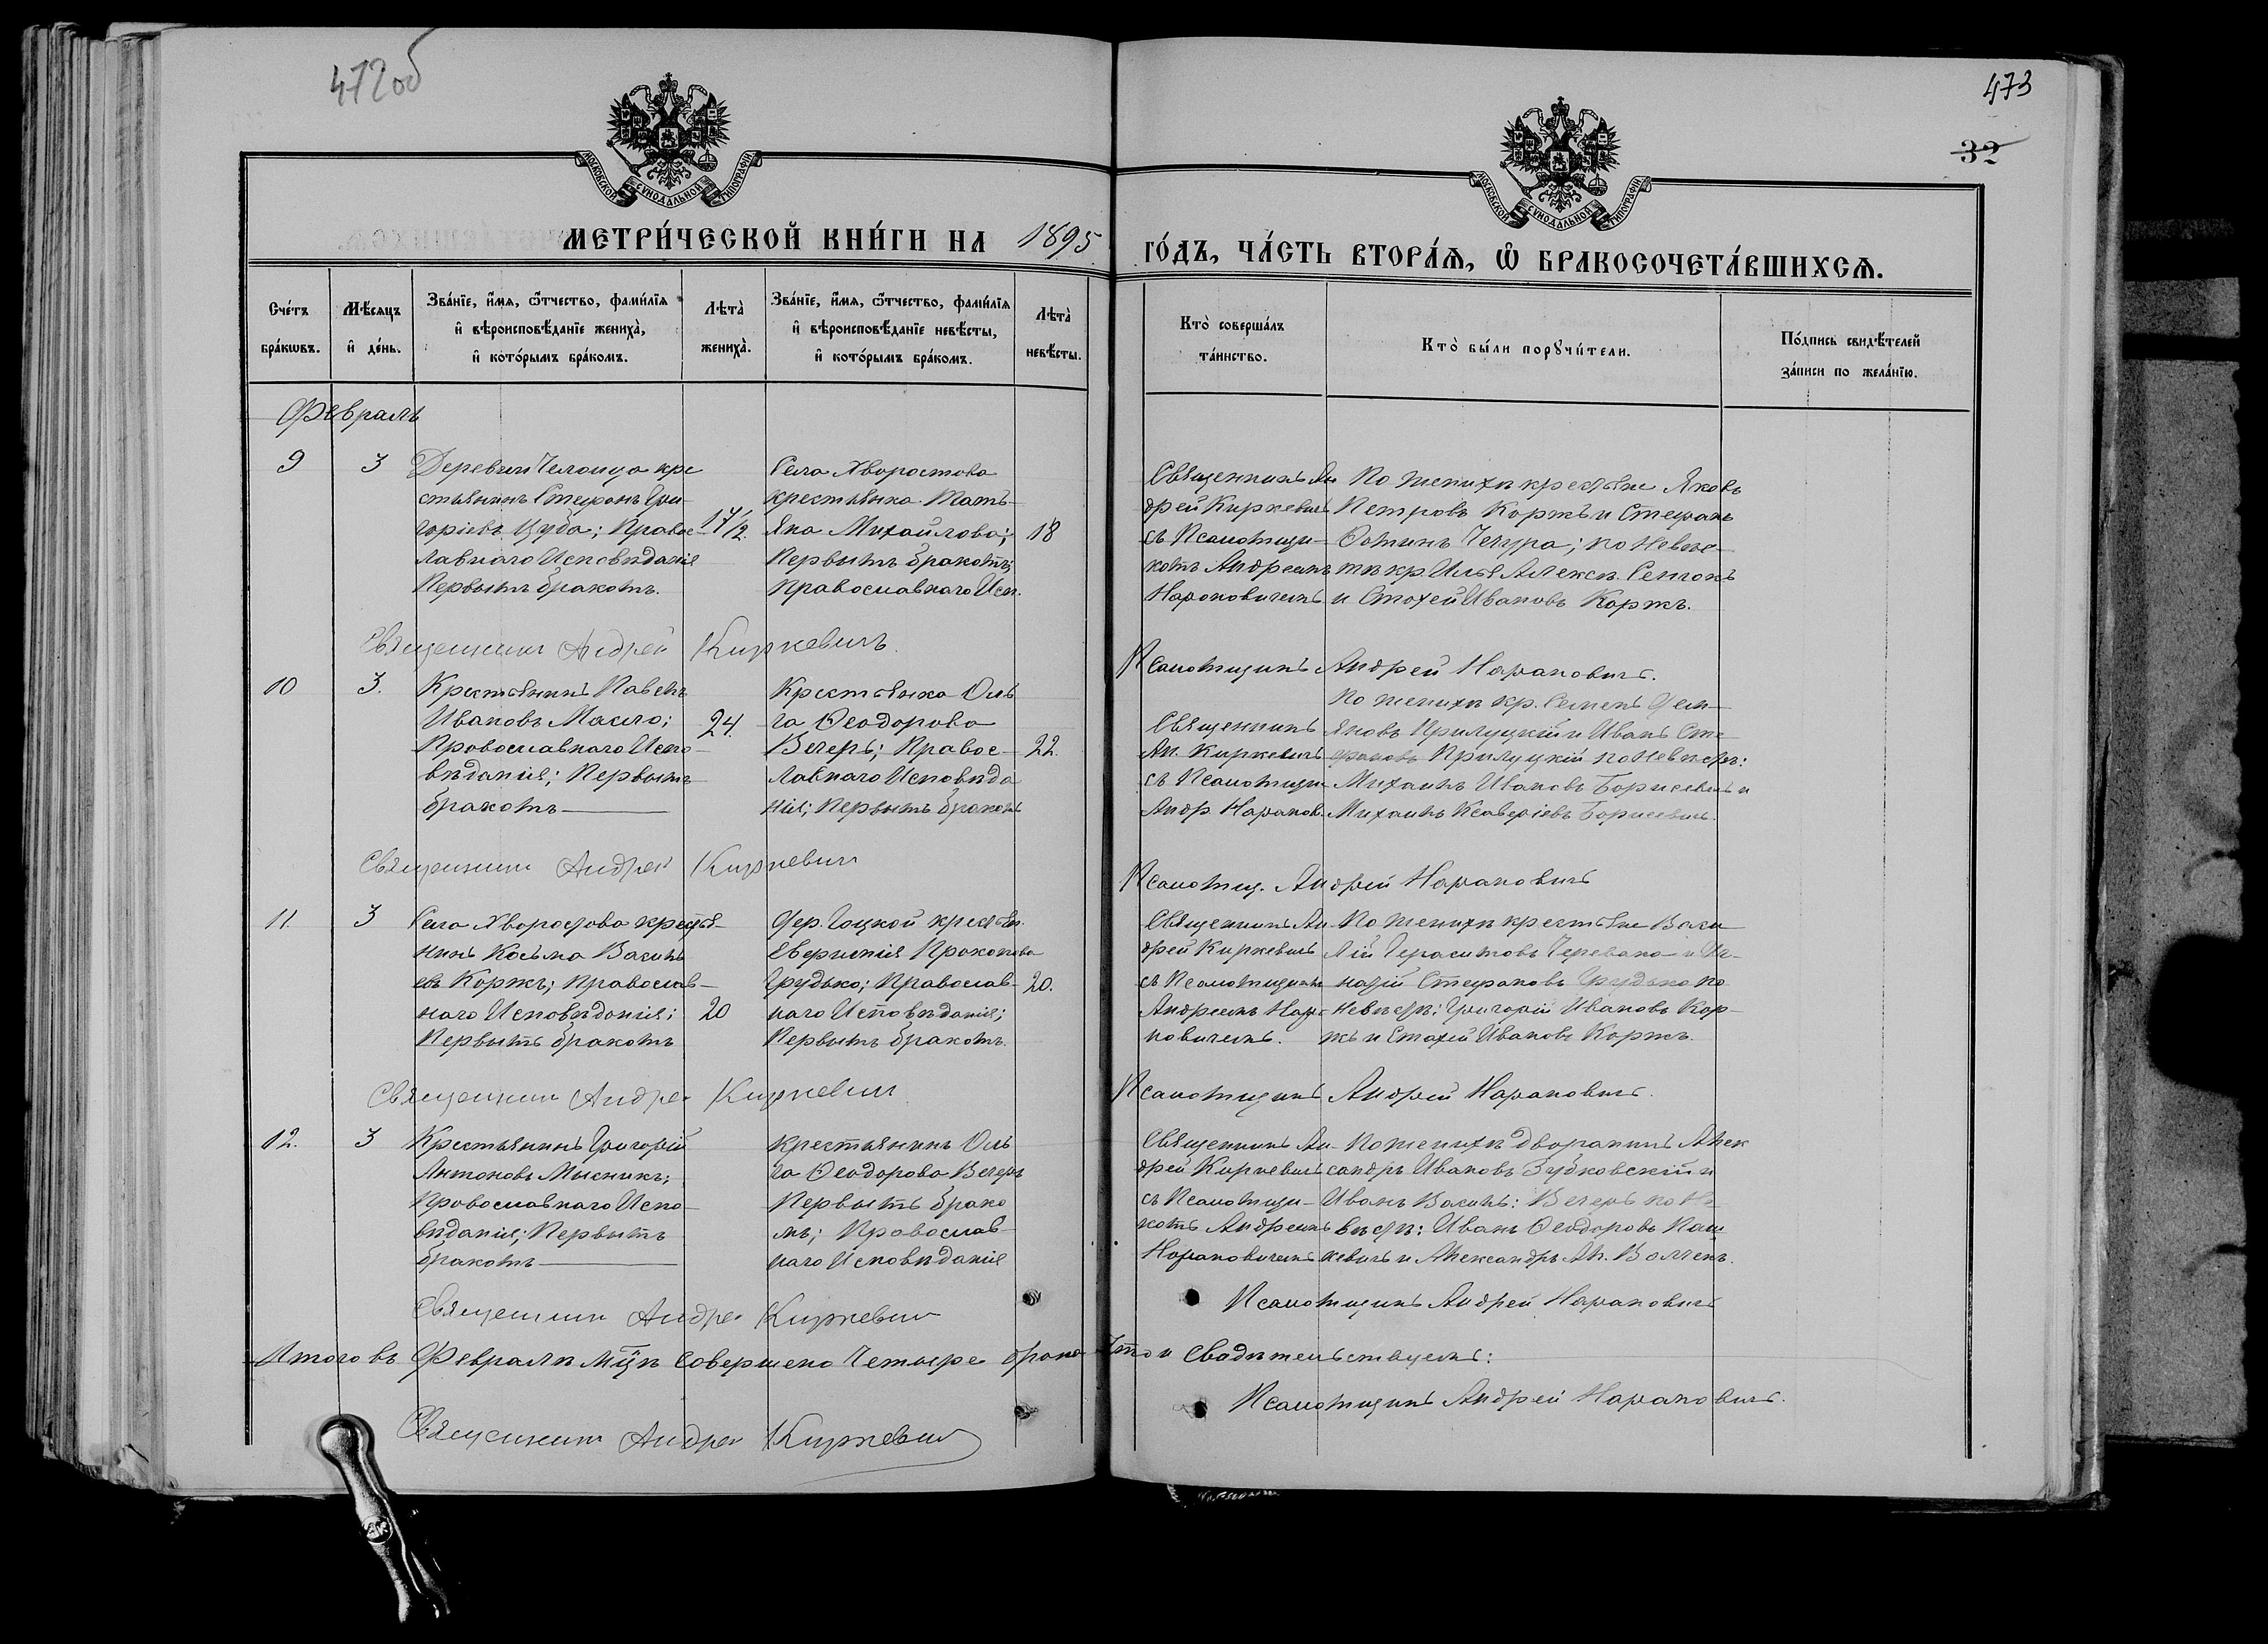 472об
473
32
МОСКОВСКОЙ СѴНОДАЛЬНОЙ ТИПОГРАФІИ
МОСКОВСКОЙ СѴНОДАЛЬНОЙ ТИПОГРАФІИ
МЕТРИ́ЧЕСКОЙ КНИ́ГИ НА 1895 ГО́ДЪ, ЧА́СТЬ ВТОРА́Ѧ, Ѡ҆ БРАКОСОЧЕТА́ВШИХСѦ.
Сче́тъ бра́кѡвъ.
Мѣ́сяцъ и҆ де́нь.
Зва́нїе, и҆́мѧ, ѻ҆́тчество, фами́лїѧ
и҆ вѣроисповѣ́данїе жениха̀,
и҆ кото́рымъ бра́комъ.
Лѣта̀ жениха̀.
Зва́нїе, и҆́мѧ, ѻ҆́тчество, фами́лїѧ
и҆ вѣроисповѣ́данїе невѣ́сты,
и҆ кото́рымъ бра́комъ.
Лѣта̀ невѣ́сты.
Кто̀ соверша́лъ та́инство.
Кто̀ бы́ли порꙋчи́тели.
По́дпись свидѣ́телей за́писи по жела́нїю.
Февраль
9
3
Деревни Челонца кре
стьянинъ Стефанъ Гри-
горіевъ Цуба; Правос-
лавнаго Исповѣданія
Первымъ бракомъ.
17 1/2.
Села Хворостова
крестьянка Тать-
яна Михайлова;
Первымъ бракомъ;
Православнаго Исп.
18
Священникъ Ан
дрей Киркевичъ
съ Псаломщи-
комъ Андреемъ
Нарановичемъ
По женихѣ крестьяне Яковъ
Петровъ Коржъ и Стефанъ
Фоминъ Чечура; по невѣс-
тѣ кр. Илья Алекс.
и Стахей Ивановъ Коржъ.
Священникъ Андрей Киркевичъ.
Псаломщикъ Андрей Нарановичъ.
10
3.
Крестьянинъ Павелъ
Ивановъ Масло;
Православнаго Испо-
вѣданія; Первымъ
бракомъ
24.
Крестьянка Оль
га Ѳеодорова
Вечеръ; Правос-
лавнаго Исповѣда
нія; Первымъ бракомъ
22.
Священникъ
Ан. Киркевичъ
съ Псаломщи-
Андр. Наранов.
По женихѣ кр. Семенъ Дем-
яновъ Прилуцкій и Иванъ Сте-
фановъ Прилуцкій по невѣстѣ:
Михаилъ Ивановъ Борисевичъ и
Михаилъ Ксаверіевъ Борисевичъ.
Священникъ Андрей Киркевич
Псаломщ. Андрей Нарановичъ
11.
3
Села Хворостова крестья-
нинъ Косьма Василь
евъ Коржъ; православ-
наго Исповѣданія;
Первымъ бракомъ
20
Дер. Гоцкой крестьян.
Евфимія Прокопова
Грудько; Православ-
наго Исповѣданія;
Первымъ бракомъ.
20.
Священникъ Ан-
дрей Киркевичъ
съ Псаломщикомъ
Андреемъ Нара-
новичемъ.
По женихѣ крестьяне Васи
лій Герасимовъ Черевако и Иг-
натій Стефановъ Грудько по
невѣстѣ: Григорій Ивановъ Кор-
жъ и Стахей Ивановъ Коржъ.
Священник Андрей Киркевич
Псаломщикъ Андрей Нарановичъ.
12.
3
Крестьянинъ Григорій
Антоновъ Мысникъ;
Православнаго Испо-
вѣданія; Первымъ
бракомъ
крестьянинъ Оль
га Ѳеодорова Вечеръ
Первымъ брако
мъ; Православ-
наго Исповѣданія
Священникъ Ан-
дрей Киркевичъ
съ Псаломщи-
комъ Андреемъ
Нарановичемъ
По женихѣ дворянинъ Алек
сандръ Ивановъ Зубковскій и
Иванъ Василь: Вечеръ по не-
вѣстѣ: Иванъ Ѳеодоровъ Паш
кевичъ и Александръ Ал.
Священник Андрей Киркевич
Псаломщикъ Андрей Нарановичъ
Итого въ Февралѣ мцѣ совершено Четыре брака Что и Свидѣтельствуемъ:
Псаломщикъ Андрей Нарановичъ.
Священник Андрей Киркевич